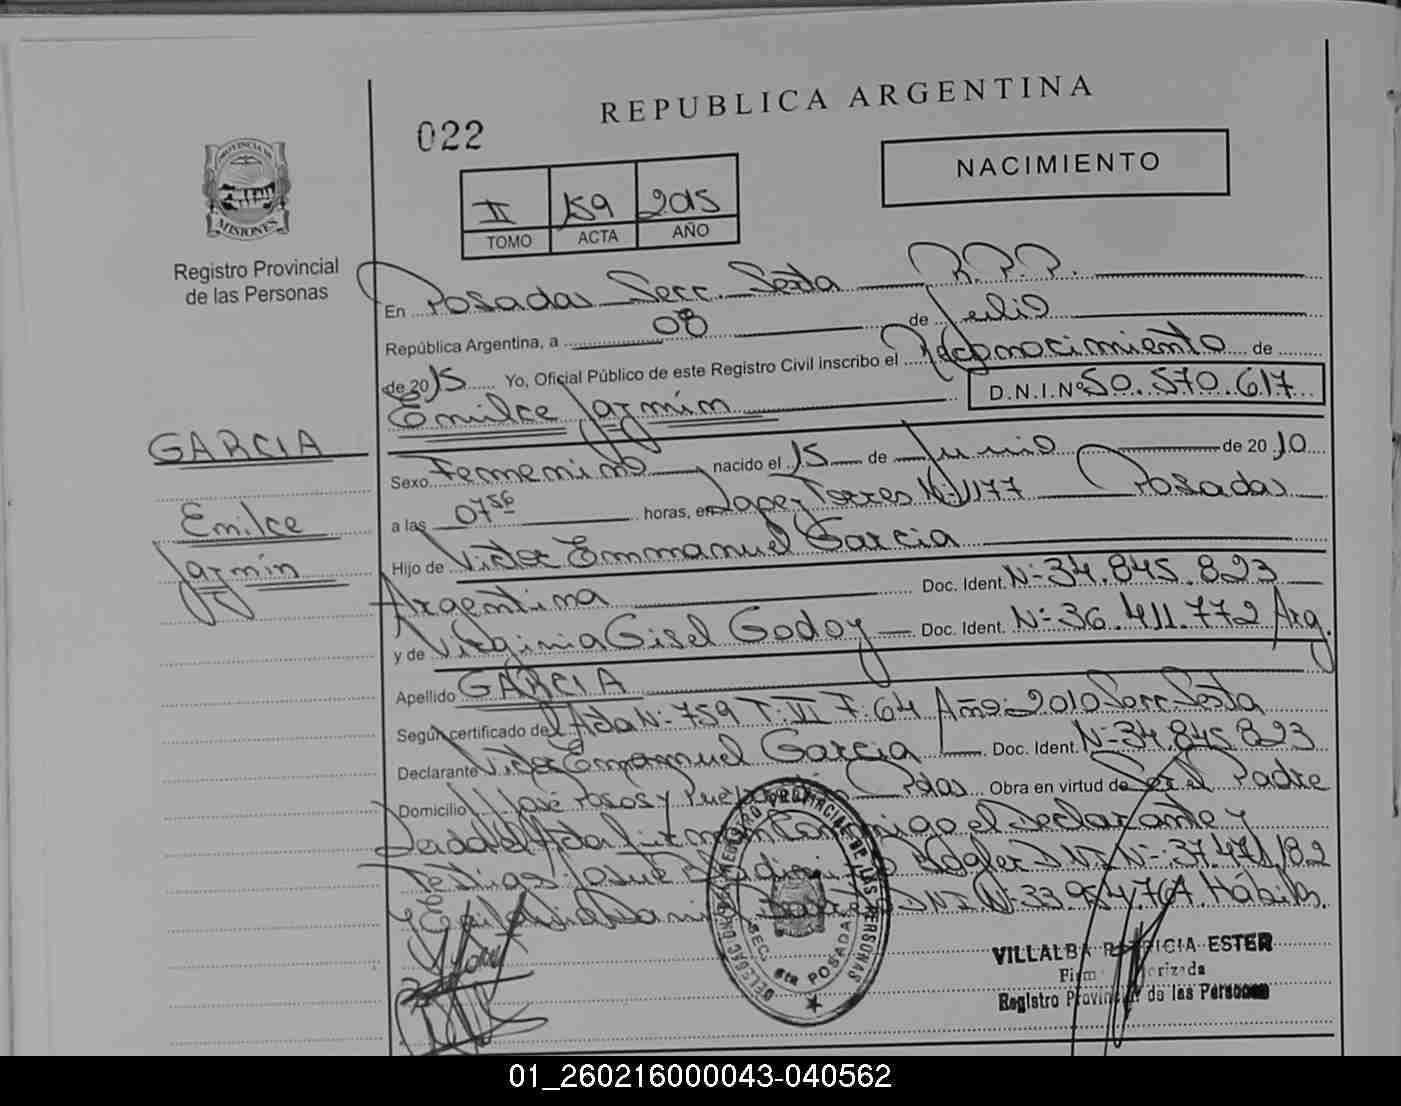 REPUBLICA ARGENTINA
022
NACIMIENTO
II 159 2015
TOMO ACTA AÑO
PROVINCIA DE
MISIONES
Registro Provincial
de las Personas
En Posadas Secc. Sexta R.P.P.
República Argentina, a 08 de Julio
de 2015 Yo, Oficial Público de este Registro Civil inscribo el Reconocimiento de
Emilce Jazmín D.N.I.Nº 50.570.617
GARCIA
Emilce
Jazmín
Sexo Femenino nacido el 15 de Junio de 2010
a las 07 56 horas, en Lopez Torres Nº 1177 Posadas
Hijo de Victor Emmanuel Garcia
Argentina Doc. Ident. Nº 34.845.823
y de Virginia Gisel Godoy Doc. Ident. Nº 36.411.772 Arg.
Apellido GARCIA
Según certificado del Acta Nº 759 T: III F: 64 Año: 2010 Secc Sexta
Declarante Victor Emmanuel Garcia Doc. Ident. Nº 34.845.823
Domicilio José Posos y Pdas Obra en virtud de Ser el Padre
Leida el Acta firman conmigo el Declarante y
Testigos Josue DNI Nº 37.471.182
y Daniel DNI Nº 33.954.764 Hábiles.
DELEGAC REGISTRO PROVINCIAL DE LAS PERSONAS
SEC. 6ta POSADAS
VILLALBA PATRICIA ESTER
Firma Autorizada
Registro Provincial de las Personas
01_260216000043-040562